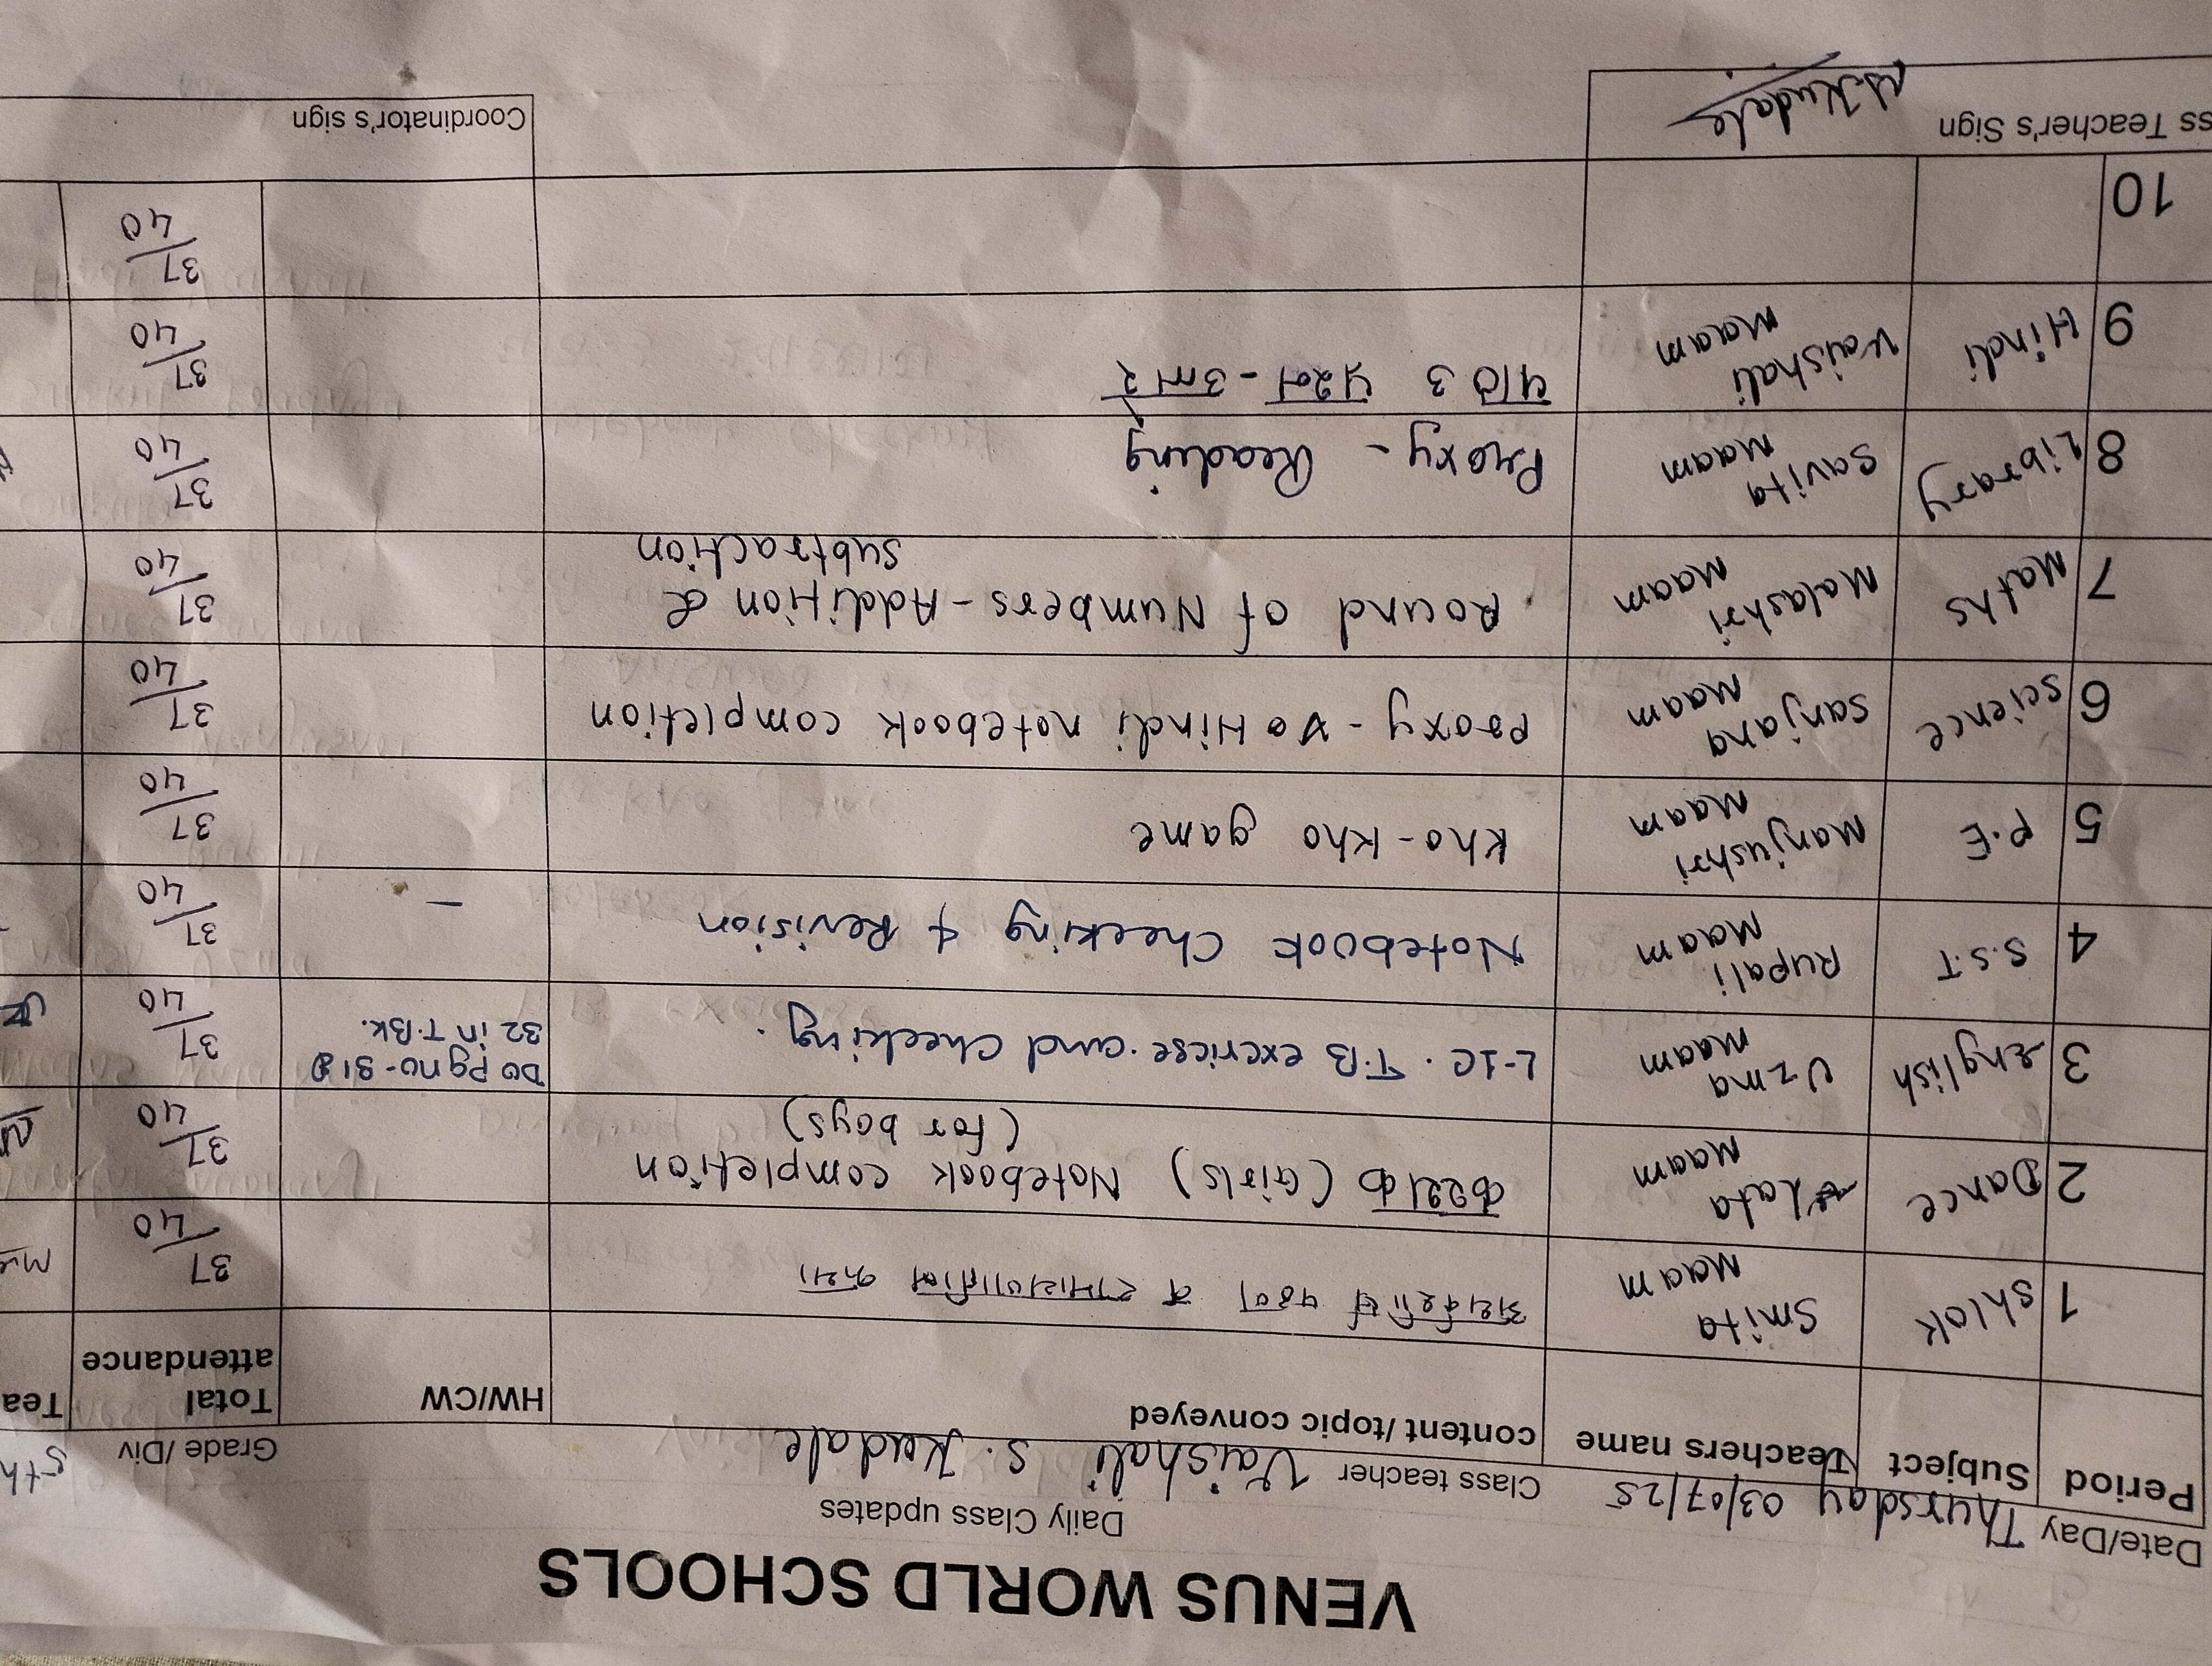 VENUS WORLD SCHOOLS
Daily Class updates
Date/Day Thursday 03/07/25 Class teacher Vaishali S. Kudale Grade /Div 5th
Period Subject Teachers name content /topic conveyed HW/CW Total attendance Tea
1 Shlok Smita Maam अथर्वशीर्ष पठण व 37/40
2 Dance Lata Maam कथ्थक (Girls) Notebook completion (for boys) 37/40
3 English Uzma Maam L-1C. T.B exericse and checking. Do Pg no-31 & 32 in T.Bk. 37/40
4 S.S.T Rupali Maam Notebook Checking & Revision – 37/40
5 P.E Manjushri Maam Kho-Kho game 37/40
6 Science Sanjana Maam Proxy - Hindi notebook completion 37/40
7 Maths Malashri Maam Round of Numbers - Addition & subtraction 37/40
8 Library Savita Maam Proxy - Reading 37/40
9 Hindi Vaishali Maam पाठ 3 प्रश्न - उत्तर 37/40
10 37/40
ss Teacher's Sign Coordinator's sign